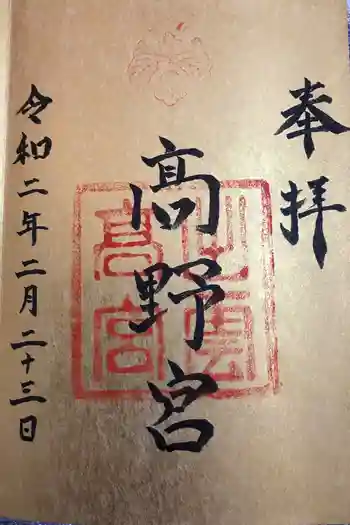 奉拝
髙野宮
令和二年二月二十三日